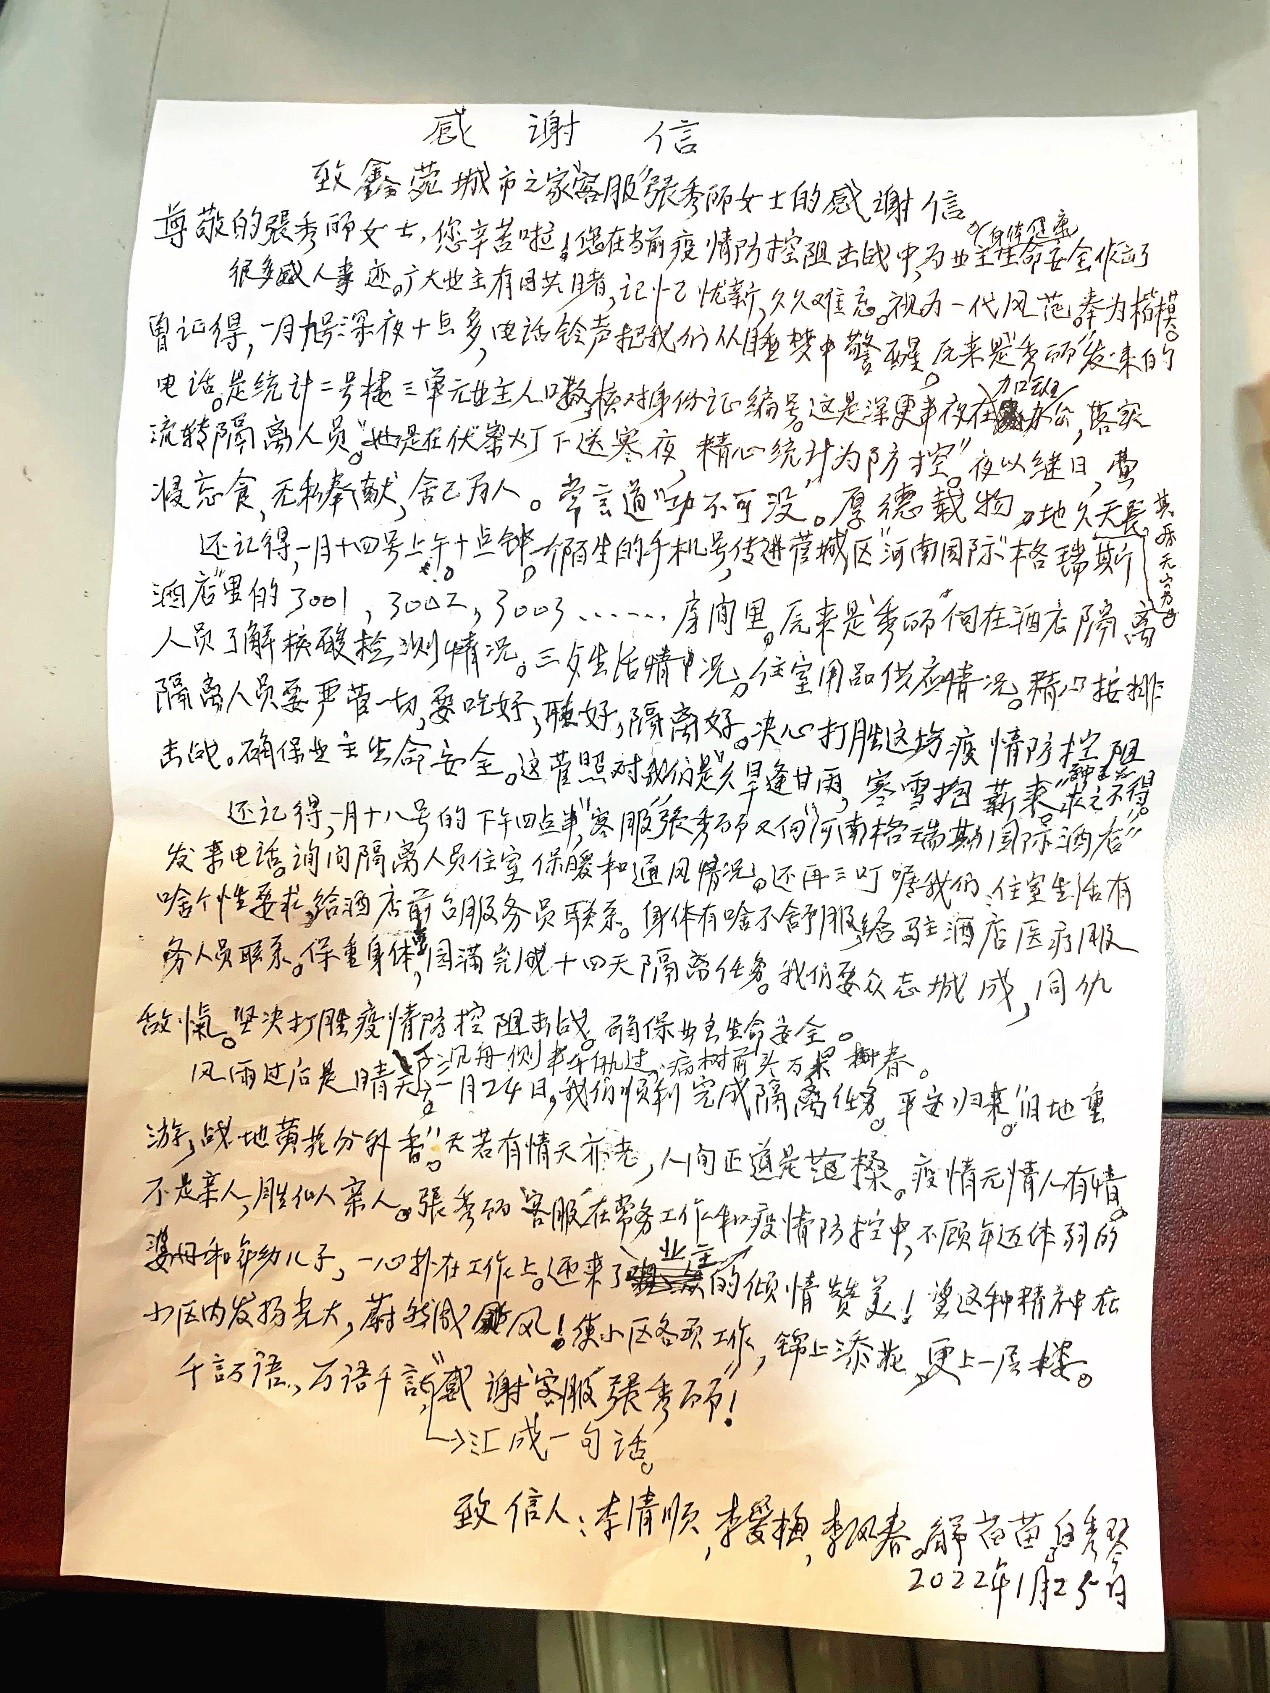 感谢信
致鑫苑城市之家"客服"張秀丽女士的感谢信
尊敬的張秀丽女士,您辛苦啦!您在当前疫情防控阻击战中,为业主生命安全作出了
身体健康
很多感人事迹。广大业主有目共睹,记忆忧新,久久难忘。视为一代风范。奉为楷模。
曾记得,一月九号深夜十点多,电话铃声把我们从睡梦中警醒。原来是"秀丽"发来的
电话。是统计二号楼三单元业主人口数,核对身份证编号。这是深更半夜在办公,落实
加班
流转隔离人员。她是在伏案灯下送寒夜,精心统计为防控。"夜以继日,费
寝忘食,无私奉献,舍己为人。常言道"功不可没。厚德载物,地久天长
还记得,一月十四号上午十点钟。个陌生的手机号,传进管城区"河南国际"格瑞斯
酒店"里的3001,3002,3003……房间里。原来是"秀丽"向在酒店隔离
人员了解核酸检测情况。三歺生活情况。住室用品供应情况。精心按排
隔离人员要严管一切,要吃好,睡好,隔离好。决心打胜这场疫情防控阻
击战。确保业主生命安全。这管照对我们是"久旱逢甘雨,寒雪抱薪来"。求之不得。
还记得,一月十八号的下午四点半,"客服"張秀丽又向"河南格瑞斯国际酒店"
发来电话。询问隔离人员住室保暖和通风情况。还再三叮嘱我们:住室生活有
啥个性要求,给酒店前台服务员联系。身体有啥不舒服,给驻酒店医疗服
务人员联系。保重身体,园满完成十四天隔离任务。我们要众志城成,同仇
敌忾。坚决打胜疫情防控阻击战。确保业主生命安全。
沉舟侧半千帆过,病树前头万木春。
风雨过后是晴天。一月24日,我们顺利完成隔离任务。平安归来。"旧地重
游,战地黄花分外香"。天若有情天亦老,人间正道是沧桑。疫情无情人有情。
不是亲人,胜似人亲人。張秀丽"客服"在常务工作和疫情防控中,不顾年迈体弱的
婆母和年幼儿子,一心扑在工作上。迎来了业主的倾情赞美!望这种精神在
小区内发扬光大,蔚然成风!使小区各项工作,锦上添花,更上一层楼。
千言万语,万语千言,"感谢"客服"張秀丽!
→汇成一句话。
致信人:李清顺,李爱梅,李风春。解苗苗。白秀琴
2022年1月25日